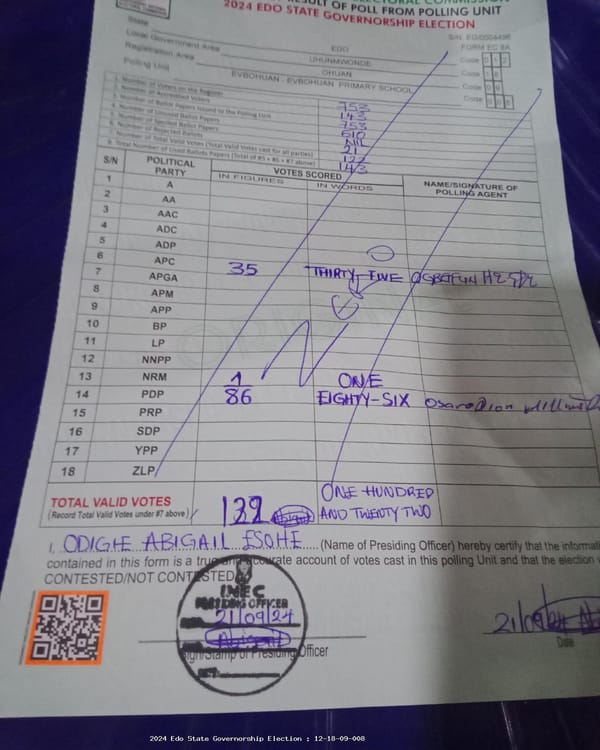 RESULT OF POLL FROM POLLING UNIT
2024 EDO STATE GOVERNORSHIP ELECTION
FORM EC 8A
State EDO Code 0 1 2
Local Government Area UHUNMWONDE Code 1 8
Registration Area OHUAN Code 0 9
Polling Unit EVBOHUAN - EVBOHUAN PRIMARY SCHOOL Code 0 0 8
1. Number of Voters on the Register 753
2. Number of Accredited Voters 143
3. Number of Ballot Papers Issued to the Polling Unit 753
4. Number of Unused Ballot Papers 610
5. Number of Spoiled Ballot Papers NIL
6. Number of Rejected Ballots 21
7. Number of Total Valid Votes (Total Valid Votes cast for all parties) 122
8. Total Number of Used Ballots Papers (Total of #5 + #6 + #7 above) 143
S/N POLITICAL PARTY VOTES SCORED NAME/SIGNATURE OF POLLING AGENT
IN FIGURES IN WORDS
1 A
2 AA
3 AAC
4 ADC
5 ADP
6 APC 35 THIRTY-FIVE
7 APGA
8 APM
9 APP
10 BP
11 LP
12 NNPP
13 NRM 1 ONE
14 PDP 86 EIGHTY-SIX
15 PRP
16 SDP
17 YPP
18 ZLP
TOTAL VALID VOTES ONE HUNDRED
(Record Total Valid Votes under #7 above) AND TWENTY TWO
I, ODIGIE ABIGAIL ESOHE (Name of Presiding Officer) hereby certify that the informati
contained in this form is a true and accurate account of votes cast in this polling Unit and that the election
CONTESTED/NOT CONTESTED
INEC
PRESIDING OFFICER
21/09/24
Sign/Stamp of Presiding Officer
21/09/24
Date
2024 Edo State Governorship Election : 12-18-09-008